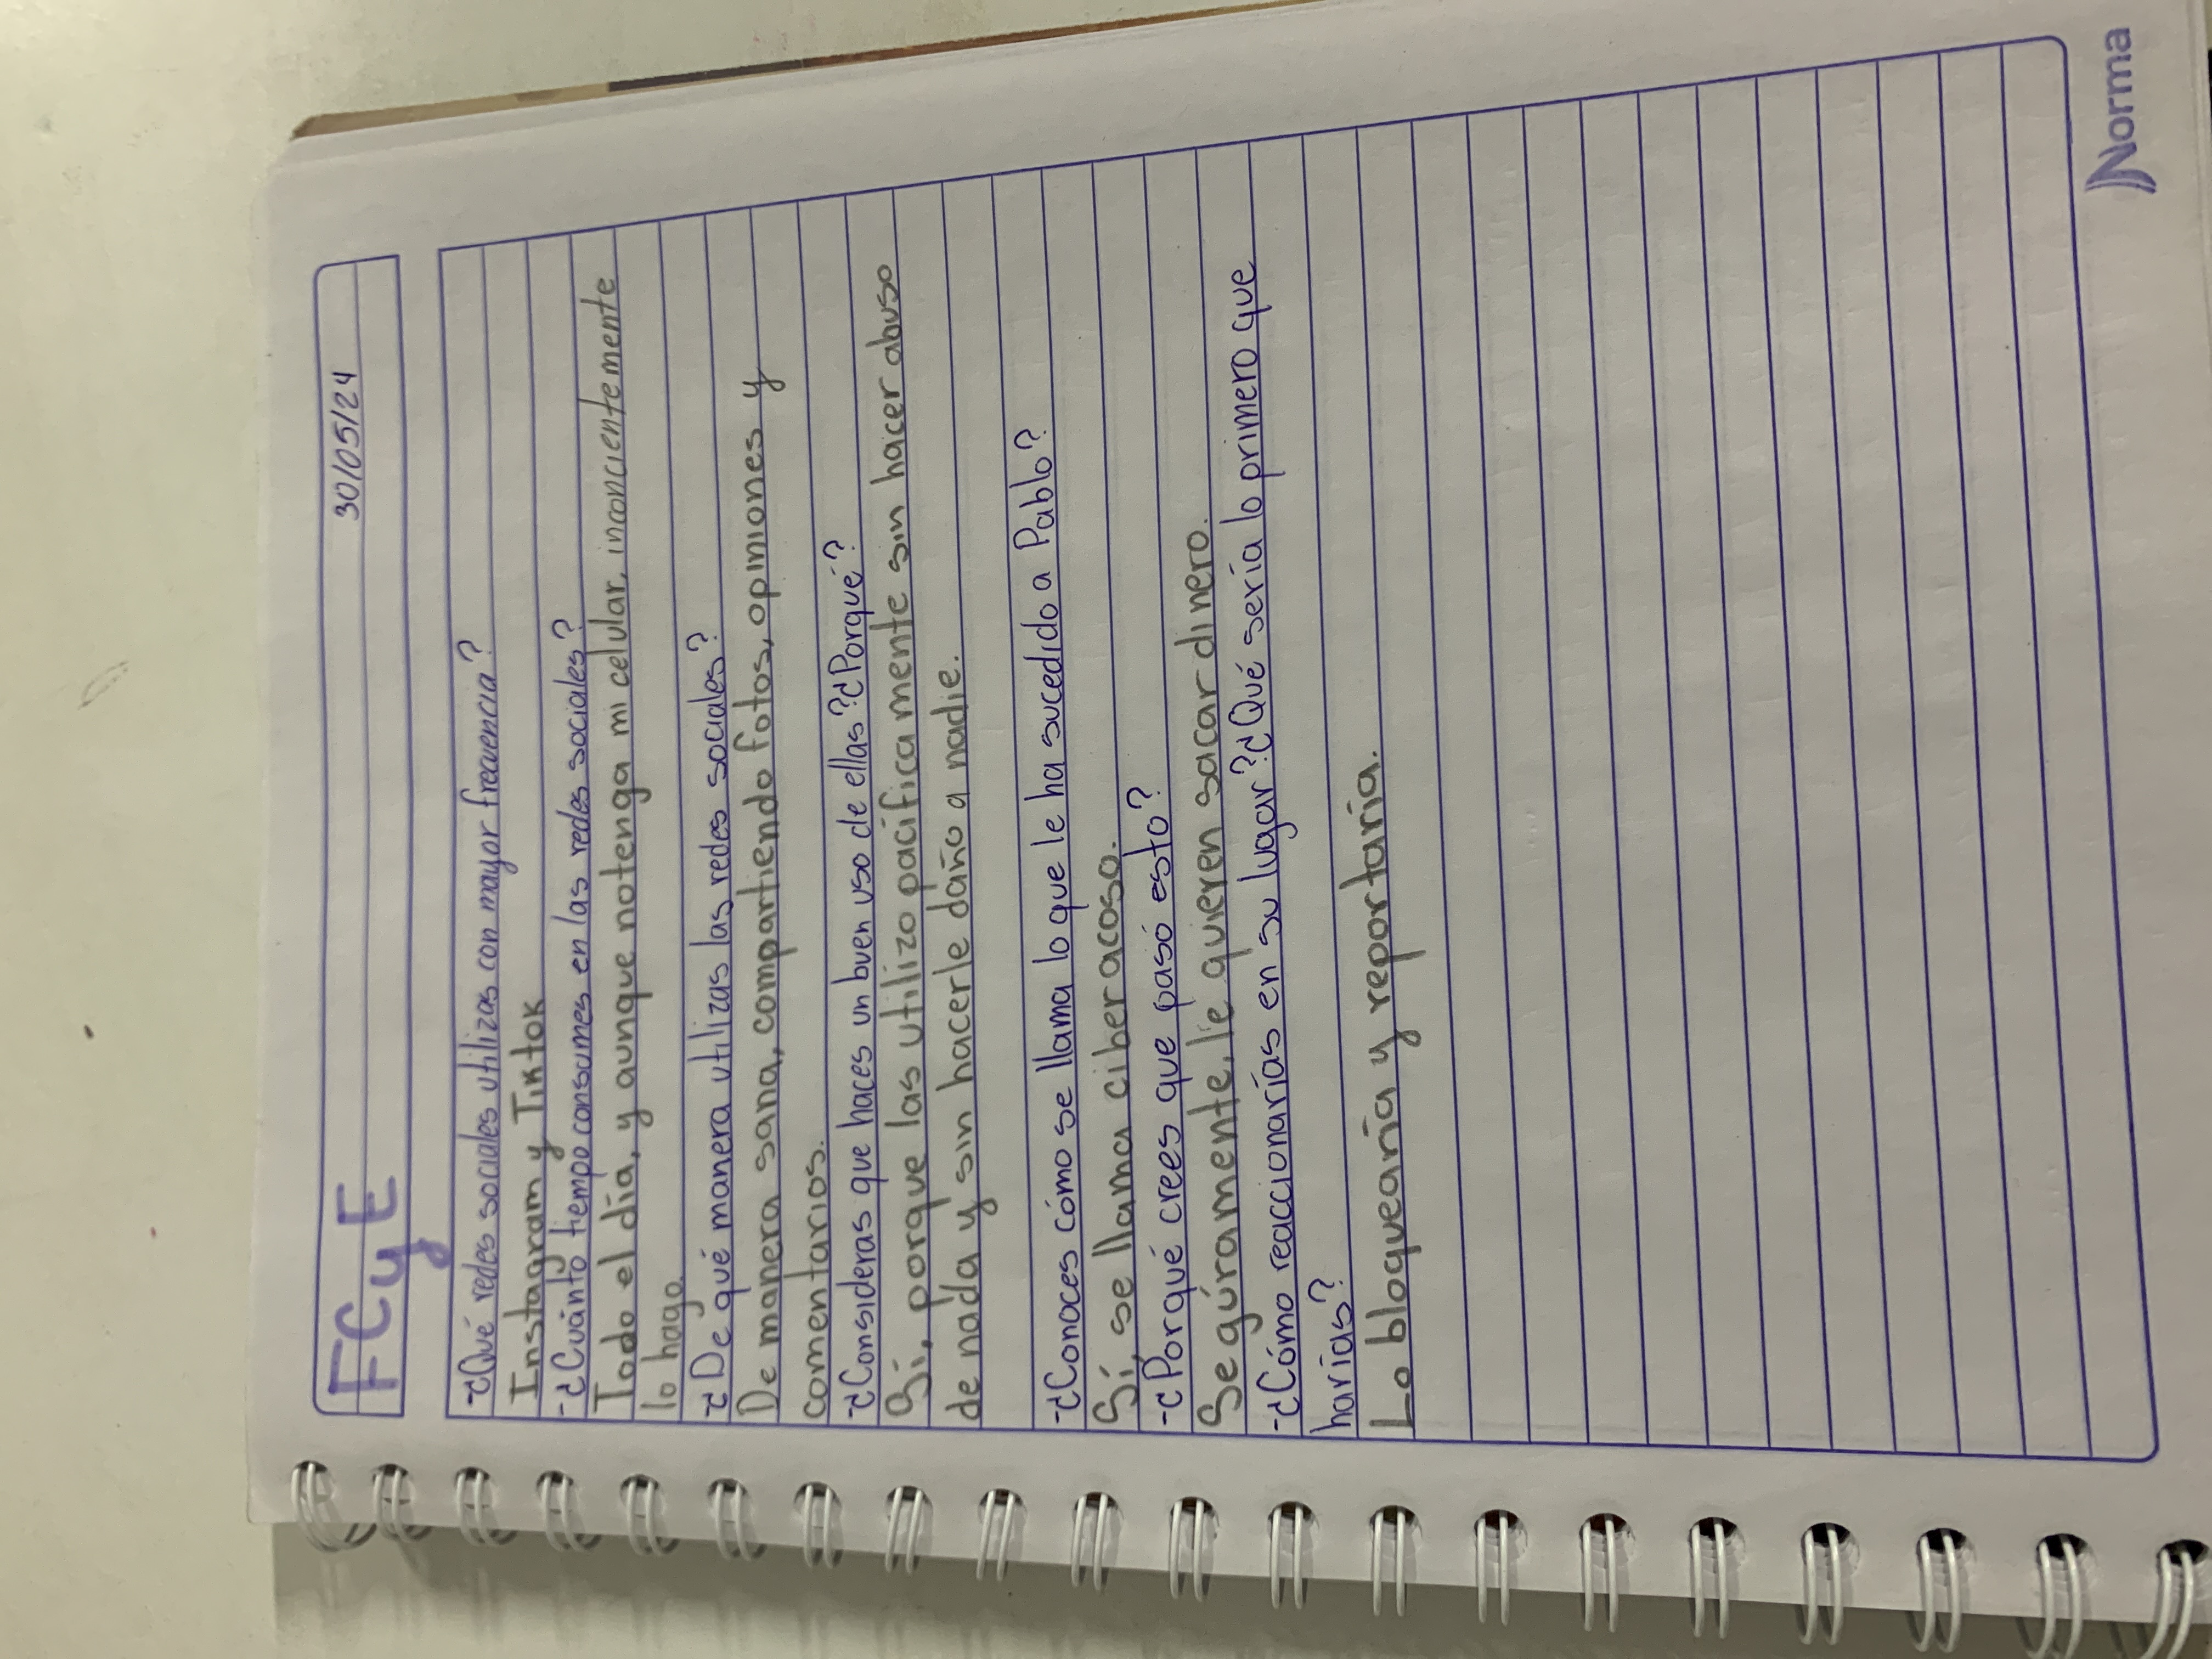 FCyE
30/05/24
-¿Qué redes sociales utilizas con mayor frecuencia?
Instagram y Tiktok
-¿Cuánto tiempo consumes en las redes sociales?
Todo el día, y aunque no tenga mi celular, inoncientemente
lo hago.
-¿De qué manera utilizas las redes sociales?
De manera sana, compartiendo fotos, opiniones y
comentarios.
-¿Consideras que haces un buen uso de ellas? ¿Porqué?
Sí, porque las utilizo pacíficamente sin hacer abuso
de nada y sin hacerle daño a nadie.
-¿Conoces cómo se llama lo que le ha sucedido a Pablo?
Sí, se llama ciberacoso.
-¿Porqué crees que pasó esto?
Segúramente, le quieren sacar dinero.
-¿Cómo reaccionarías en su lugar? ¿Qué sería lo primero que
harías?
Lo bloquearía y reportaría.
Norma